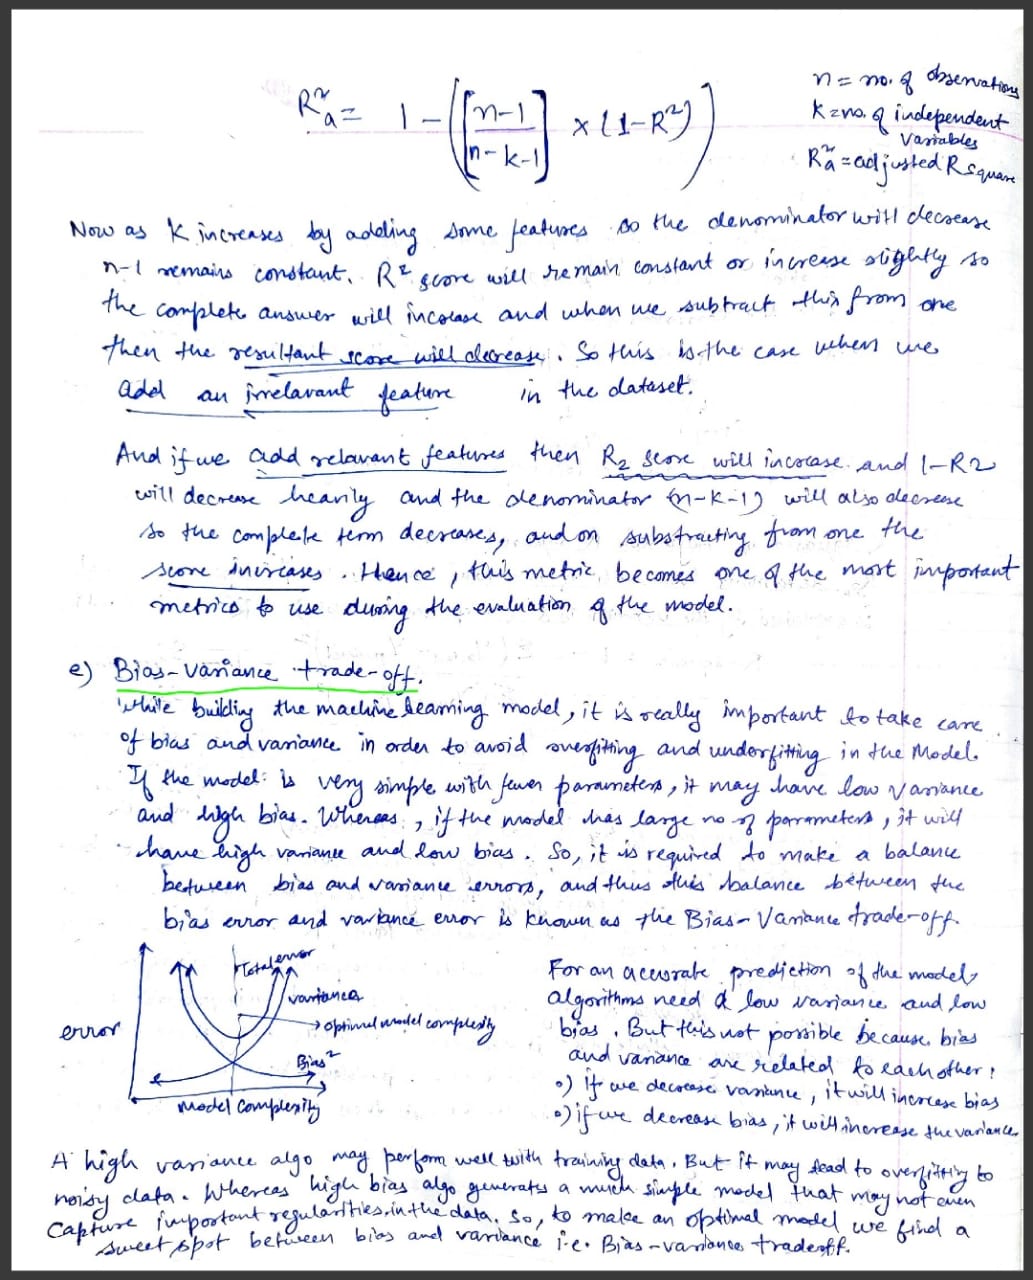 R²a = 1 - ([n-1 / n-k-1] × (1-R²))
n = no. of observations
K = no. of independent
variables
R²a = adjusted R square
Now as K increases by adding some features so the denominator will decrease
n-1 remains constant. R² score will remain constant or increase slightly so
the complete answer will increase and when we subtract this from one
then the resultant score will decrease. So this is the case when we
add an irrelavant feature in the dataset.
And if we add relavant features then R2 score will increase and 1-R2
will decrease heavily and the denominator (n-k-1) will also decrease
so the complete term decreases, and on substracting from one the
score increases. Hence, this metric becomes one of the most important
metrics to use during the evaluation of the model.
e) Bias-Variance trade-off.
While building the machine learning model, it is really important to take care
of bias and variance in order to avoid overfitting and underfitting in the Model.
If the model is very simple with fewer parameters, it may have low variance
and high bias. Whereas, if the model has large no of parameters, it will
have high variance and low bias. So, it is required to make a balance
between bias and variance errors, and thus this balance between the
bias error and variance error is known as the Bias-Variance trade-off.
Total error
variance
→ optimal model complexity
error
Bias²
Model Complexity
For an accurate prediction of the model,
algorithms need a low variance and low
bias. But this not possible because bias
and variance are related to each other:
•) If we decrease variance, it will increase bias
•) if we decrease bias, it will increase the variance.
A high variance algo may perform well with training data. But it may lead to overfitting to
noisy data. Whereas high bias algo generates a much simple model that may not even
Capture important regularities in the data. So, to make an optimal model we find a
sweet spot between bias and variance i.e. Bias-variance tradeoff.